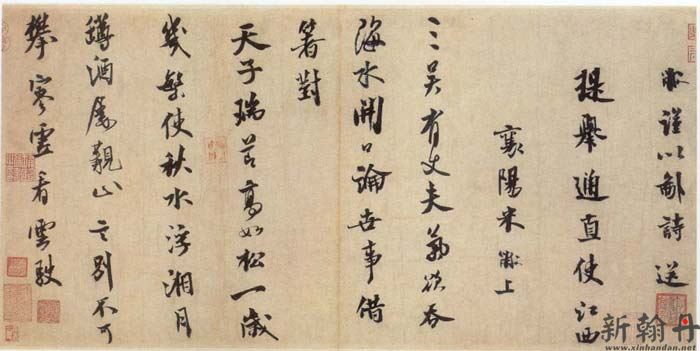 黻謹以鄙詩送
提舉通直使江西
襄陽米黻上
三吳有丈夫氣欲吞
海水開口論世事借
箸對
天子瑞節高如松一歲
幾繁使秋水浮湘月
罇酒屢覯止言別不可
攀寒雲看雲駛
新翰丹
www.xinhandan.net